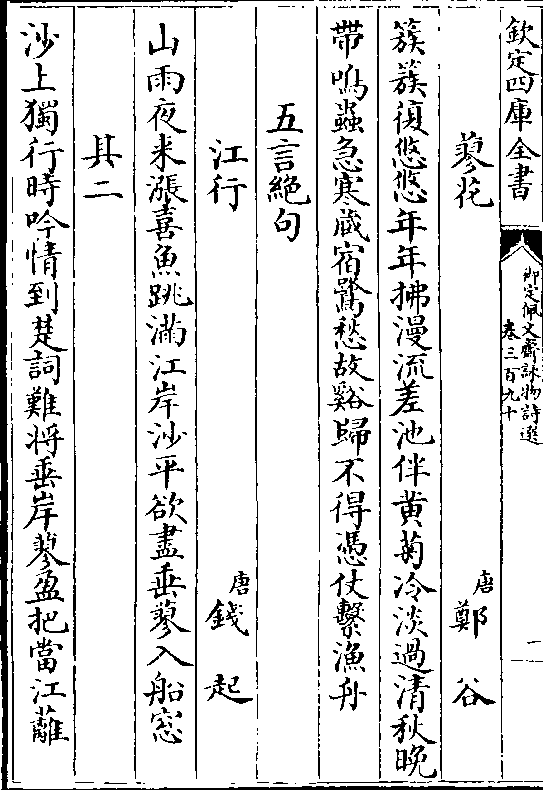 欽定四庫全書
御定佩文齋詠物詩選
卷三百九十
一
蓼花
唐 鄭谷
簇簇復悠悠年年拂漫流差池伴黄菊冷淡過清秋晚
帶鳴蟲急寒藏宿鷺愁故谿歸不得憑仗繫漁舟
五言絶句
江行
唐 錢起
山雨夜來漲喜魚跳滿江岸沙平欲盡垂蓼入船窓
其二
沙上獨行時吟情到楚詞難將垂岸蓼盈把當江蘺